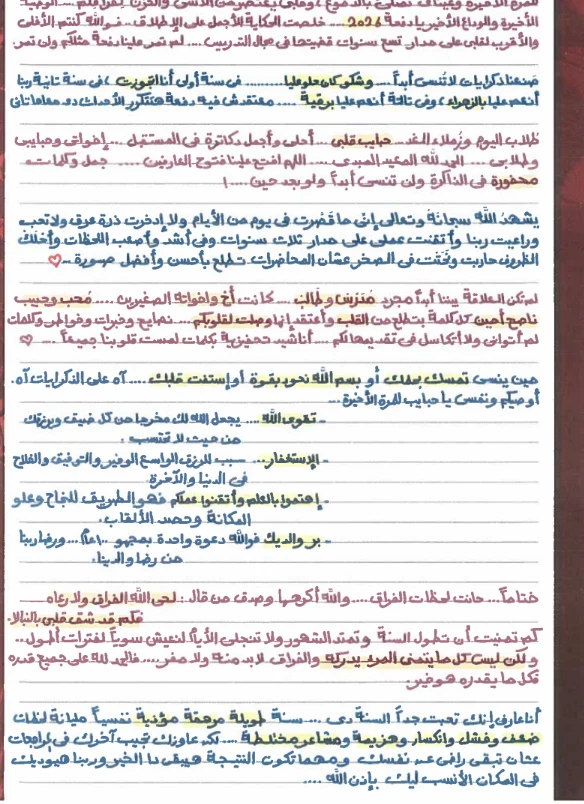 الأخيرة والوداع الأخير يا دفعة 2026 .... خلصت الحكاية الأجمل على الإطلاق .. فوالله كنتم الأغلى
والأقرب لقلبي على مدار تسع سنوات قضيتها في مجال التدريس .... لم تمر علينا دفعة مثلكم ولن تمر.
صنعنا ذكرايات لا تُنسى أبداً .... وشكو كان حلو علينا .... في سنة أولى أنا اتجوزت ، في سنة تانية ربنا
أنعم علينا بالزهراء ، وفي تالتة أنعم علينا برقية .... معتقدش فيه دفعة هتتكرر الأحداث دي معاها تاني
طلاب اليوم وزملاء الغد ... حبايب قلبي .... أحلى وأجمل دكاترة في المستقبل .... إخواتي وحبايبي
وطلابي .... الحمد لله المعيد المبدي .... اللهم افتح علينا فتوح العارفين .... جمل وكلمات
محفورة في الذاكرة ولن تنسى أبداً ولو بعد حين .... !
يشهد الله سبحانة وتعالى إني ما قصرت في يوم من الأيام ولا إدخرت ذرة عرق ولا تعب
وراعيت ربنا وأتقنت عملي على مدار ثلاث سنوات وفي أشد وأصعب اللحظات وأحلك
الظروف حاربت ونحَت في الصخر عشان المحاضرات تطلع بأحسن وأفضل صورة ... ♡
لم تكن العلاقة بيننا أبداً مجرد مُدَرس وطالب .... كانت أخ وإخواته الصغيرين .... مُحب وحبيب
ناصح أمين كل كلمة بتطلع من القلب وأعتقد إنها وصلت لقلوبكم .... نصايح وخبرات وخواطر وكلمات
لم أتواني ولا أتكاسل في تقديمها لكم .... أناشيد تحفيزية بكلمات لمست قلوبنا جميعاً .... ♡
حين ينسى تمسك بحلمك أو بسم الله نحور بقوة أو إستفت قلبك .... آه على الذكرايات آه.
أوصيكم ونفسي يا حبايب للمرة الأخيرة ...
- تقوى الله .... يجعل الله لك مخرجا من كل ضيق ويرزقك
من حيث لا تحتسب .
- الإستغفار ... سبب للرزق الواسع الوفير والتوفيق والفلاح
في الدنيا والآخرة.
- إهتموا بالعلم وأتقنوا عملكم فهو الطريق للنجاح وعلو
المكانة وحصد الألقاب.
- بر والديك فوالله دعوة واحدة بمجهو ... ورضا ربنا
من رضا والدينا.
ختاماً ... حانت لحظات الفراق .... والله أكرهها وصدق من قال : لحى الله الفراق ولا رعاه
فكم قد شق قلبي بالنبال.
كم تمنيت أن تطول السنة وتمتد الشهور ولا تنجلى الأيام لنعيش سوياً لفترات أطول ...
ولكن ليس كل ما يتمنى المرء يدركه والفراق لابد منة ولا مفر .... فالحمد لله على جميع قدره
فكل ما يقدره هو خير.
أنا عارف إنك تعبت جداً السنة دي .... سنة طويلة مرهقة مؤذية نفسياً مليانة لحظات
ضعف وفشل وانكسار وهزيمة ومشاعر مختلطة .... لكن عاوزك تجيب آخرك في المراجعات
عشان تبقى راضي عن نفسك ومهما تكون النتيجة هيبقى دا الخير وربنا هيوديك
في المكان الأنسب ليك بإذن الله ....